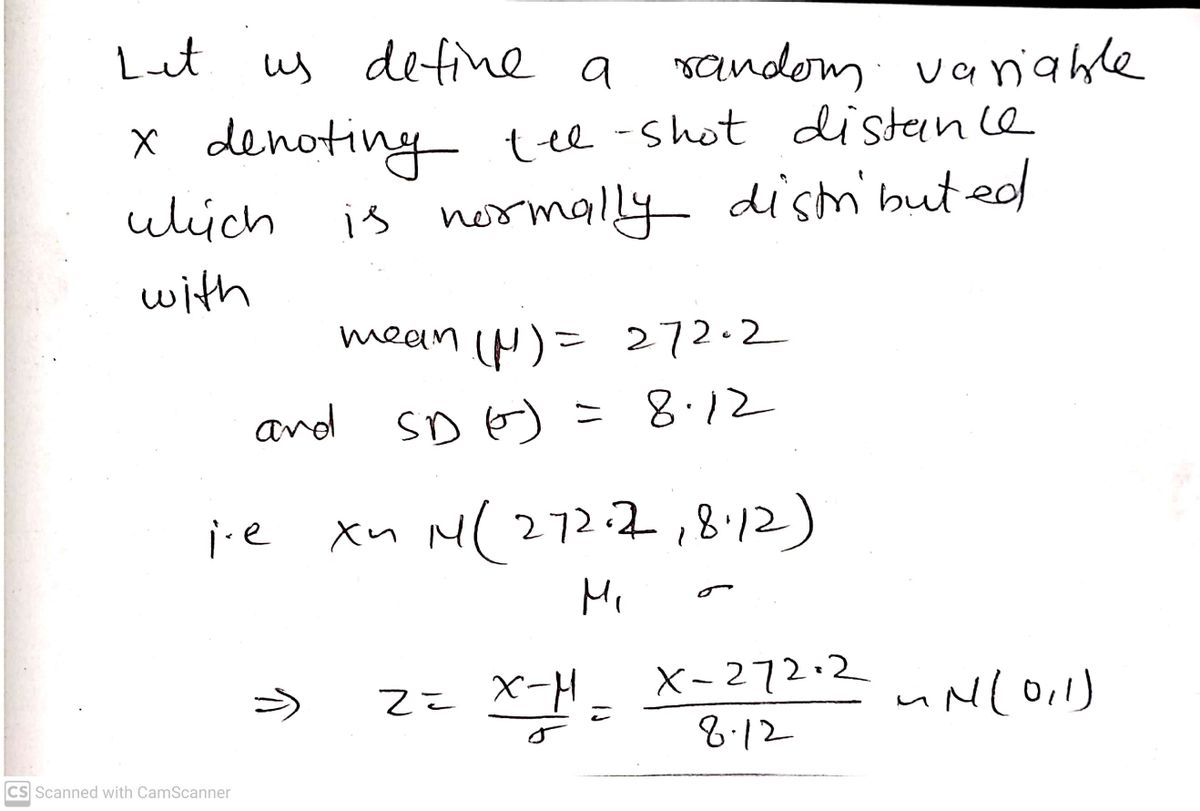 Let us define a random variable
x denoting tee-shot distance
which is normally distributed
with
mean (μ) = 272.2
and SD (σ) = 8.12
i.e X ~ N(272.2, 8.12)
μ, σ
⇒ Z = X-μ/σ = X-272.2/8.12 ~ N(0,1)
CS Scanned with CamScanner